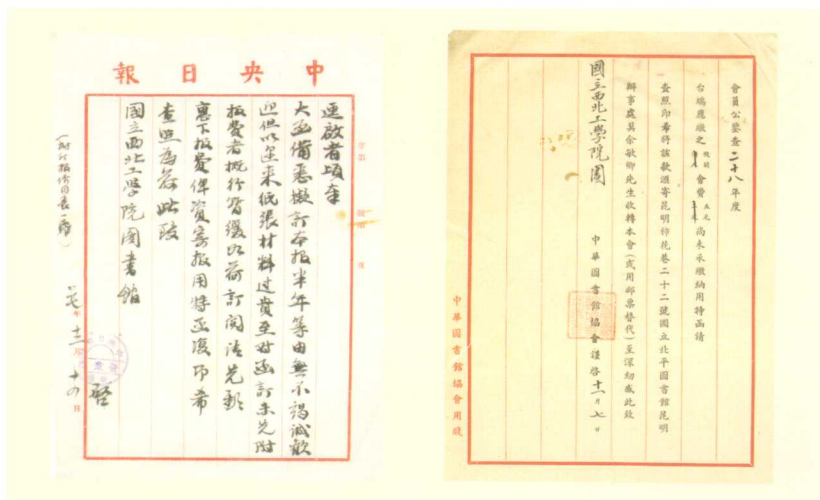 中央日報
逕啟者頃奉
大函備悉擬訂本報半年等由無不竭誠歡
迎但以近來紙張材料过貴至对函訂未先附
报費者概行暫緩如荷訂閱請先匯
惠下报費俾資寄报用特函復即希
查照為荷此致
國立西北工學院圖書館
啓
年十二月十四日
會員公鑒查二十八年度
台端應繳之會費尚未承繳納用特函請
查照即希將該款滙寄昆明柿花巷二十二號國立北平圖書館昆明
辦事處萬余敏卿先生收轉本會(或用郵票替代)至深紉感此致
國立西北工學院圖
中華圖書館協會謹啓十一月七日
中華圖書館協會用牋